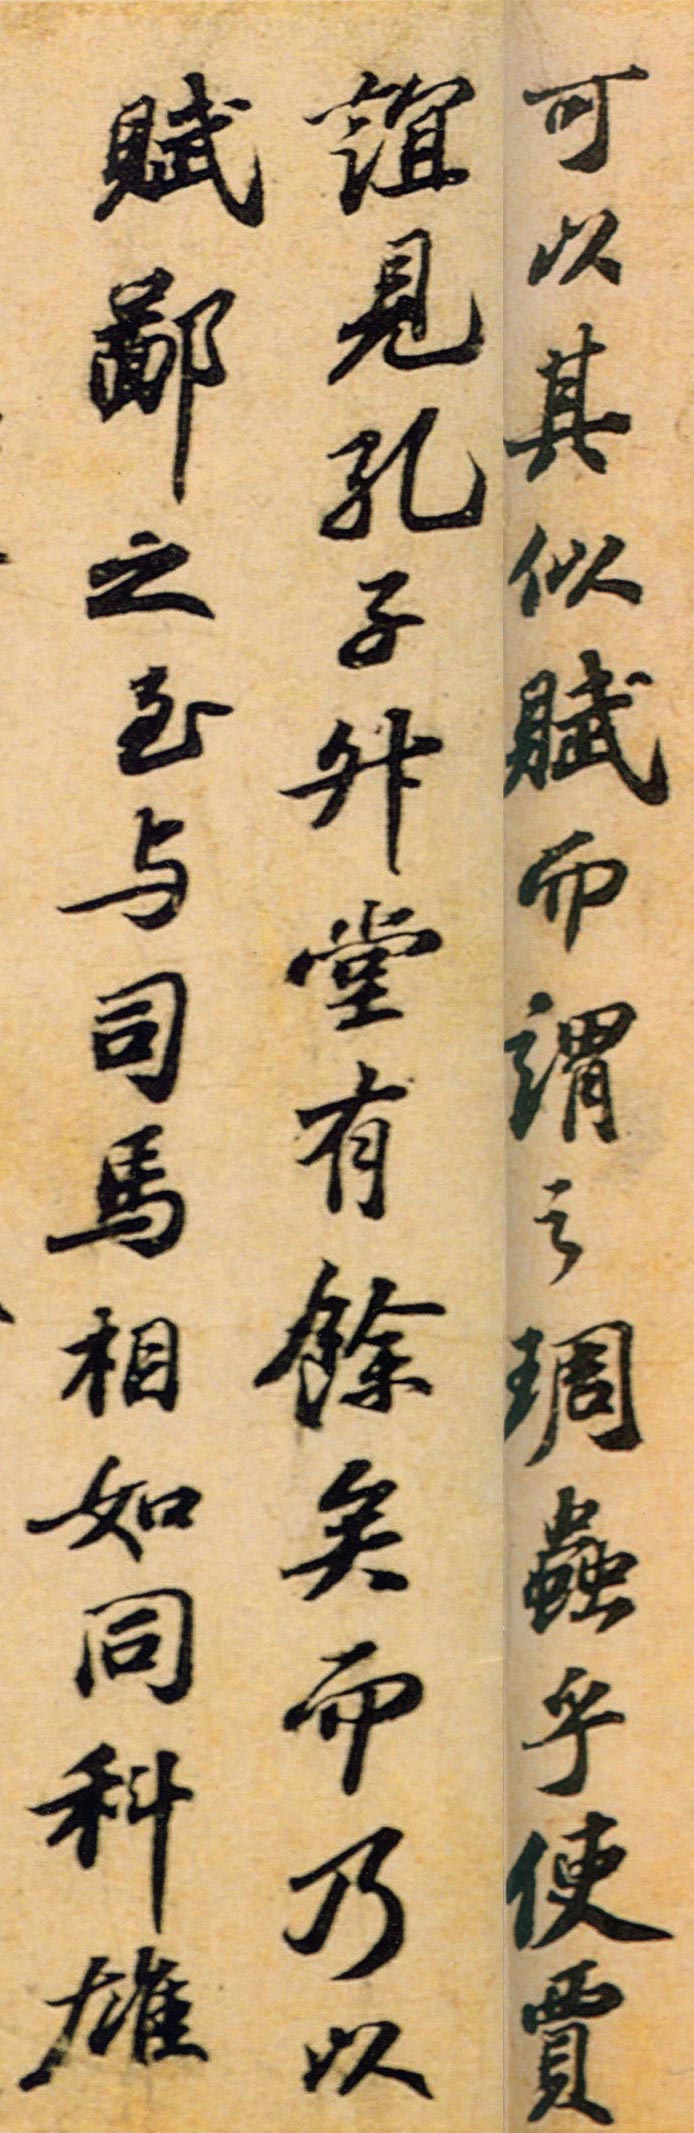 可以其似賦而謂之琱蟲乎使賈
誼見孔子升堂有餘矣而乃以
賦鄙之至与司馬相如同科雄